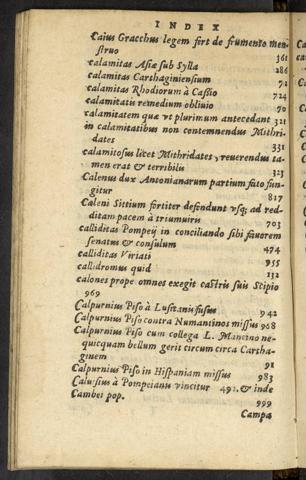 INDEX
Caius Gracchus legem fert de frumento men-
struo 361
calamitas Asiæ sub Sylla 286
calamitas Carthaginiensium 72
calamitas Rhodiorum à Cassio 724
calamitatis remedium obliuio 70
calamitatem que vt plurimum antecedant 321
in calamitatibus non contemnendus Mithri-
dates 331
calamitosus licet Mithridates, reuerendus ta-
men erat & terribilis 323
Calenus dux Antonianarum partium fato fun-
gitur 817
Caleni Sitium fortiter defendunt vsq; ad red-
ditam pacem à triumuiris 703
calliditas Pompeij in conciliando sibi fauorem
senatus & consulum 474
calliditas Viriati 955
callidromus quid 112
calones prope omnes exegit castris suis Scipio
969
Calpurnius Piso à Lusitanis fusus 942
Calpurnius Piso contra Numantinos missus 968
Calpurnius Piso cum collega L. Mancino ne-
quicquam bellum gerit circum circa Cartha-
ginem 91
Calpurnius Piso in Hispaniam missus 983
Caluisius à Pompeianis vincitur 492. & inde
Cambei pop. 999
Campa